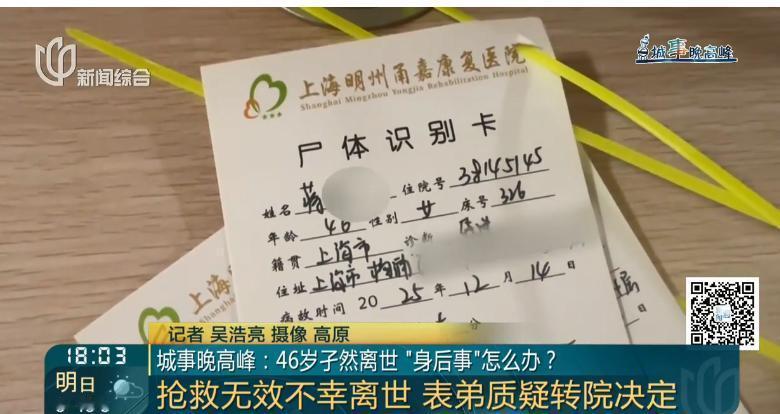 新闻综合
城事晚高峰
上海明州甬嘉康复医院
Shanghai Mingzhou Yongjia Rehabilitation Hospital
尸体识别卡
姓名 蒋 住院号 38145145
年龄 46 性别 女 床号 326
籍贯 上海市 诊断
住址 上海市
病故时间 2025年12月14日
分
记者 吴浩亮 摄像 高原
18:03
城事晚高峰：46岁孑然离世 "身后事"怎么办？
明日
抢救无效不幸离世 表弟质疑转院决定